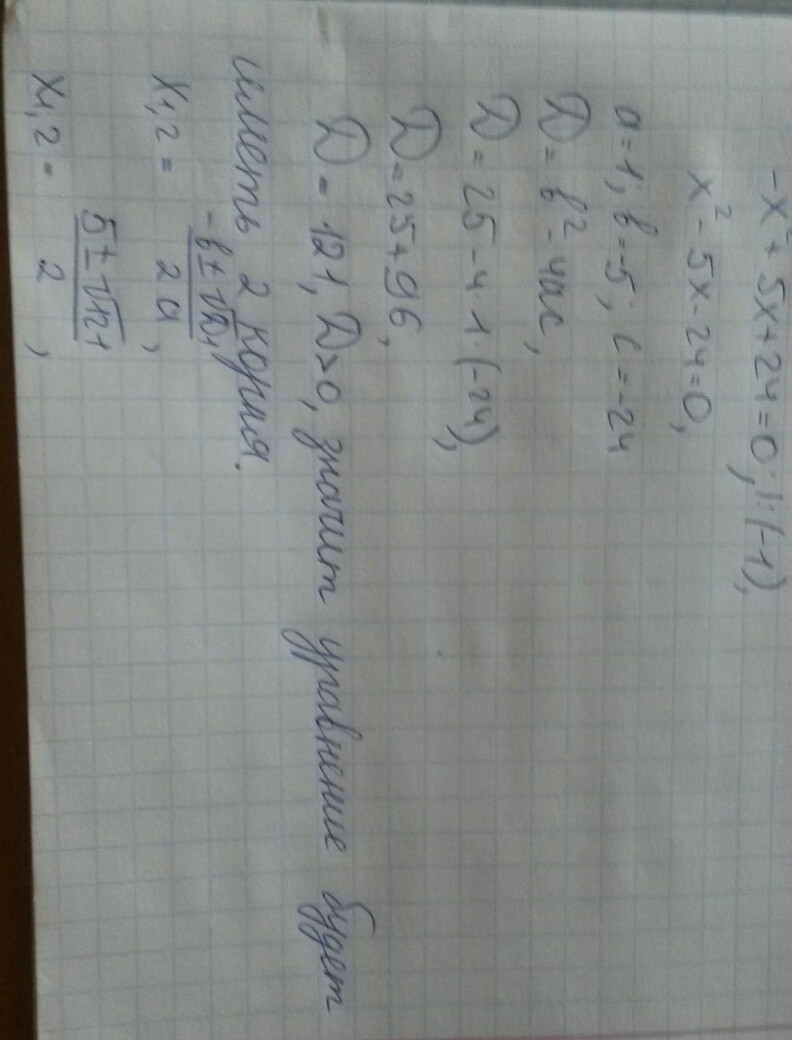 -x² + 5x + 24 = 0; |:(-1),
x² - 5x - 24 = 0,
a = 1; b = -5; c = -24
D = b² - 4ac,
D = 25 - 4·1·(-24),
D = 25 + 96,
D = 121, D>0, значит уравнение будет
иметь 2 корня.
x1,2 = (-b ± √D)/2a,
x1,2 = (5 ± √121)/2,